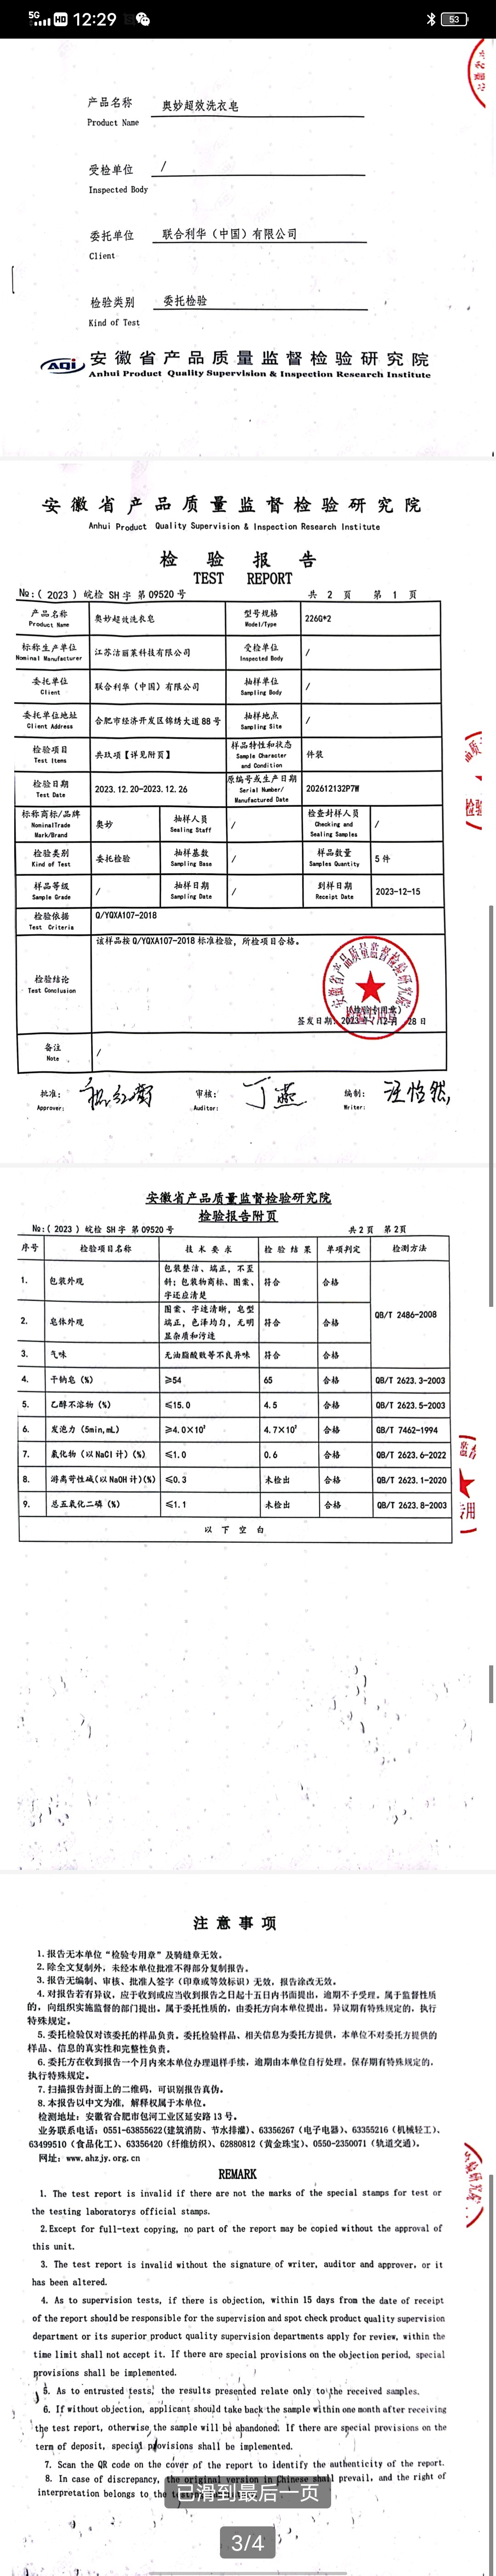 5G HD 12:29 53
产品名称 奥妙超效洗衣皂
Product Name
受检单位 /
Inspected Body
委托单位 联合利华（中国）有限公司
Client
检验类别 委托检验
Kind of Test
AQI 安徽省产品质量监督检验研究院
Anhui Product Quality Supervision & Inspection Research Institute
安徽省产品质量监督检验研究院
Anhui Product Quality Supervision & Inspection Research Institute
检验报告
TEST REPORT
№:（2023）皖检 SH字 第 09520 号 共 2 页 第 1 页
产品名称 奥妙超效洗衣皂 型号规格 226G*2
Product Name Model/Type
标称生产单位 江苏洁丽莱科技有限公司 受检单位 /
Nominal Manufacturer Inspected Body
委托单位 联合利华（中国）有限公司 抽样单位 /
Client Sampling Body
委托单位地址 合肥市经济开发区锦绣大道 88 号 抽样地点 /
Client Address Sampling Site
检验项目 共玖项【详见附页】 样品特性和状态 件装
Test Items Sample Character and Condition
检验日期 2023.12.20-2023.12.26 原编号或生产日期 202612132P7W
Test Date Serial Number/ Manufactured Date
标称商标/品牌 奥妙 抽样人员 / 检查封样人员 /
NominalTrade Mark/Brand Sealing Staff Checking and Sealing Samples
检验类别 委托检验 抽样基数 / 样品数量 5 件
Kind of Test Sampling Base Samples Quantity
样品等级 / 抽样日期 / 到样日期 2023-12-15
Sample Grade Sampling Date Receipt Date
检验依据 Q/YQXA107-2018
Test Criteria
该样品按 Q/YQXA107-2018 标准检验，所检项目合格。
检验结论
Test Conclusion
安徽省产品质量监督检验研究院
（检验专用章）
签发日期：2023 年 12 月 28 日
备注 /
Note
批准： 审核： 丁燕 编制： 汪恰然
Approver: Auditor: Writer:
安徽省产品质量监督检验研究院
检验报告附页
№:（2023）皖检 SH字 第 09520 号 共 2 页 第 2页
序号 检验项目名称 技术要求 检验结果 单项判定 检测方法
1. 包装外观 包装整洁、端正，不歪斜；包装物商标、图案、字迹应清楚 符合 合格 QB/T 2486-2008
2. 皂体外观 图案、字迹清晰，皂型端正，色泽均匀，无明显杂质和污迹 符合 合格
3. 气味 无油脂酸败等不良异味 符合 合格
4. 干钠皂（%） ≥54 65 合格 QB/T 2623.3-2003
5. 乙醇不溶物（%） ≤15.0 4.5 合格 QB/T 2623.5-2003
6. 发泡力（5min,mL） ≥4.0×10² 4.7×10² 合格 GB/T 7462-1994
7. 氯化物（以 NaCl 计）（%） ≤1.0 0.6 合格 QB/T 2623.6-2022
8. 游离苛性碱（以 NaOH 计）（%） ≤0.3 未检出 合格 QB/T 2623.1-2020
9. 总五氧化二磷（%） ≤1.1 未检出 合格 QB/T 2623.8-2003
以下空白
注意事项
1. 报告无本单位“检验专用章”及骑缝章无效。
2. 除全文复制外，未经本单位批准不得部分复制报告。
3. 报告无编制、审核、批准人签字（印章或等效标识）无效，报告涂改无效。
4. 对报告若有异议，应于收到或应当收到报告之日起十五日内书面提出，逾期不予受理。属于监督性质
的，向组织实施监督的部门提出。属于委托性质的，由委托方向本单位提出，异议期有特殊规定的，执行
特殊规定。
5. 委托检验仅对该委托的样品负责。委托检验样品、相关信息为委托方提供，本单位不对委托方提供的
样品、信息的真实性和完整性负责。
6. 委托方在收到报告一个月内来本单位办理退样手续，逾期由本单位自行处理。保存期有特殊规定的，
执行特殊规定。
7. 扫描报告封面上的二维码，可识别报告真伪。
8. 本报告以中文为准，解释权属于本单位。
检测地址：安徽省合肥市包河工业区延安路 13 号。
业务联系电话：0551-63855622(建筑消防、节水排灌)、63356267（电子电器）、63355216（机械轻工）、
63499510（食品化工）、63356420（纤维纺织）、62880812（黄金珠宝）、0550-2350071（轨道交通）。
网址：www.ahzjy.org.cn
REMARK
1. The test report is invalid if there are not the marks of the special stamps for test or
the testing laboratorys official stamps.
2. Except for full-text copying, no part of the report may be copied without the approval of
this unit.
3. The test report is invalid without the signature of writer, auditor and approver, or it
has been altered.
4. As to supervision tests, if there is objection, within 15 days from the date of receipt
of the report should be responsible for the supervision and spot check product quality supervision
department or its superior product quality supervision departments apply for review, within the
time limit shall not accept it. If there are special provisions on the objection period, special
provisions shall be implemented.
5. As to entrusted tests, the results presented relate only to the received samples.
6. If without objection, applicant should take back the sample within one month after receiving
the test report, otherwise the sample will be abandoned. If there are special provisions on the
term of deposit, special provisions shall be implemented.
7. Scan the QR code on the cover of the report to identify the authenticity of the report.
8. In case of discrepancy, the original version in Chinese shall prevail, and the right of
interpretation belongs to the
已滑到最后一页
3/4